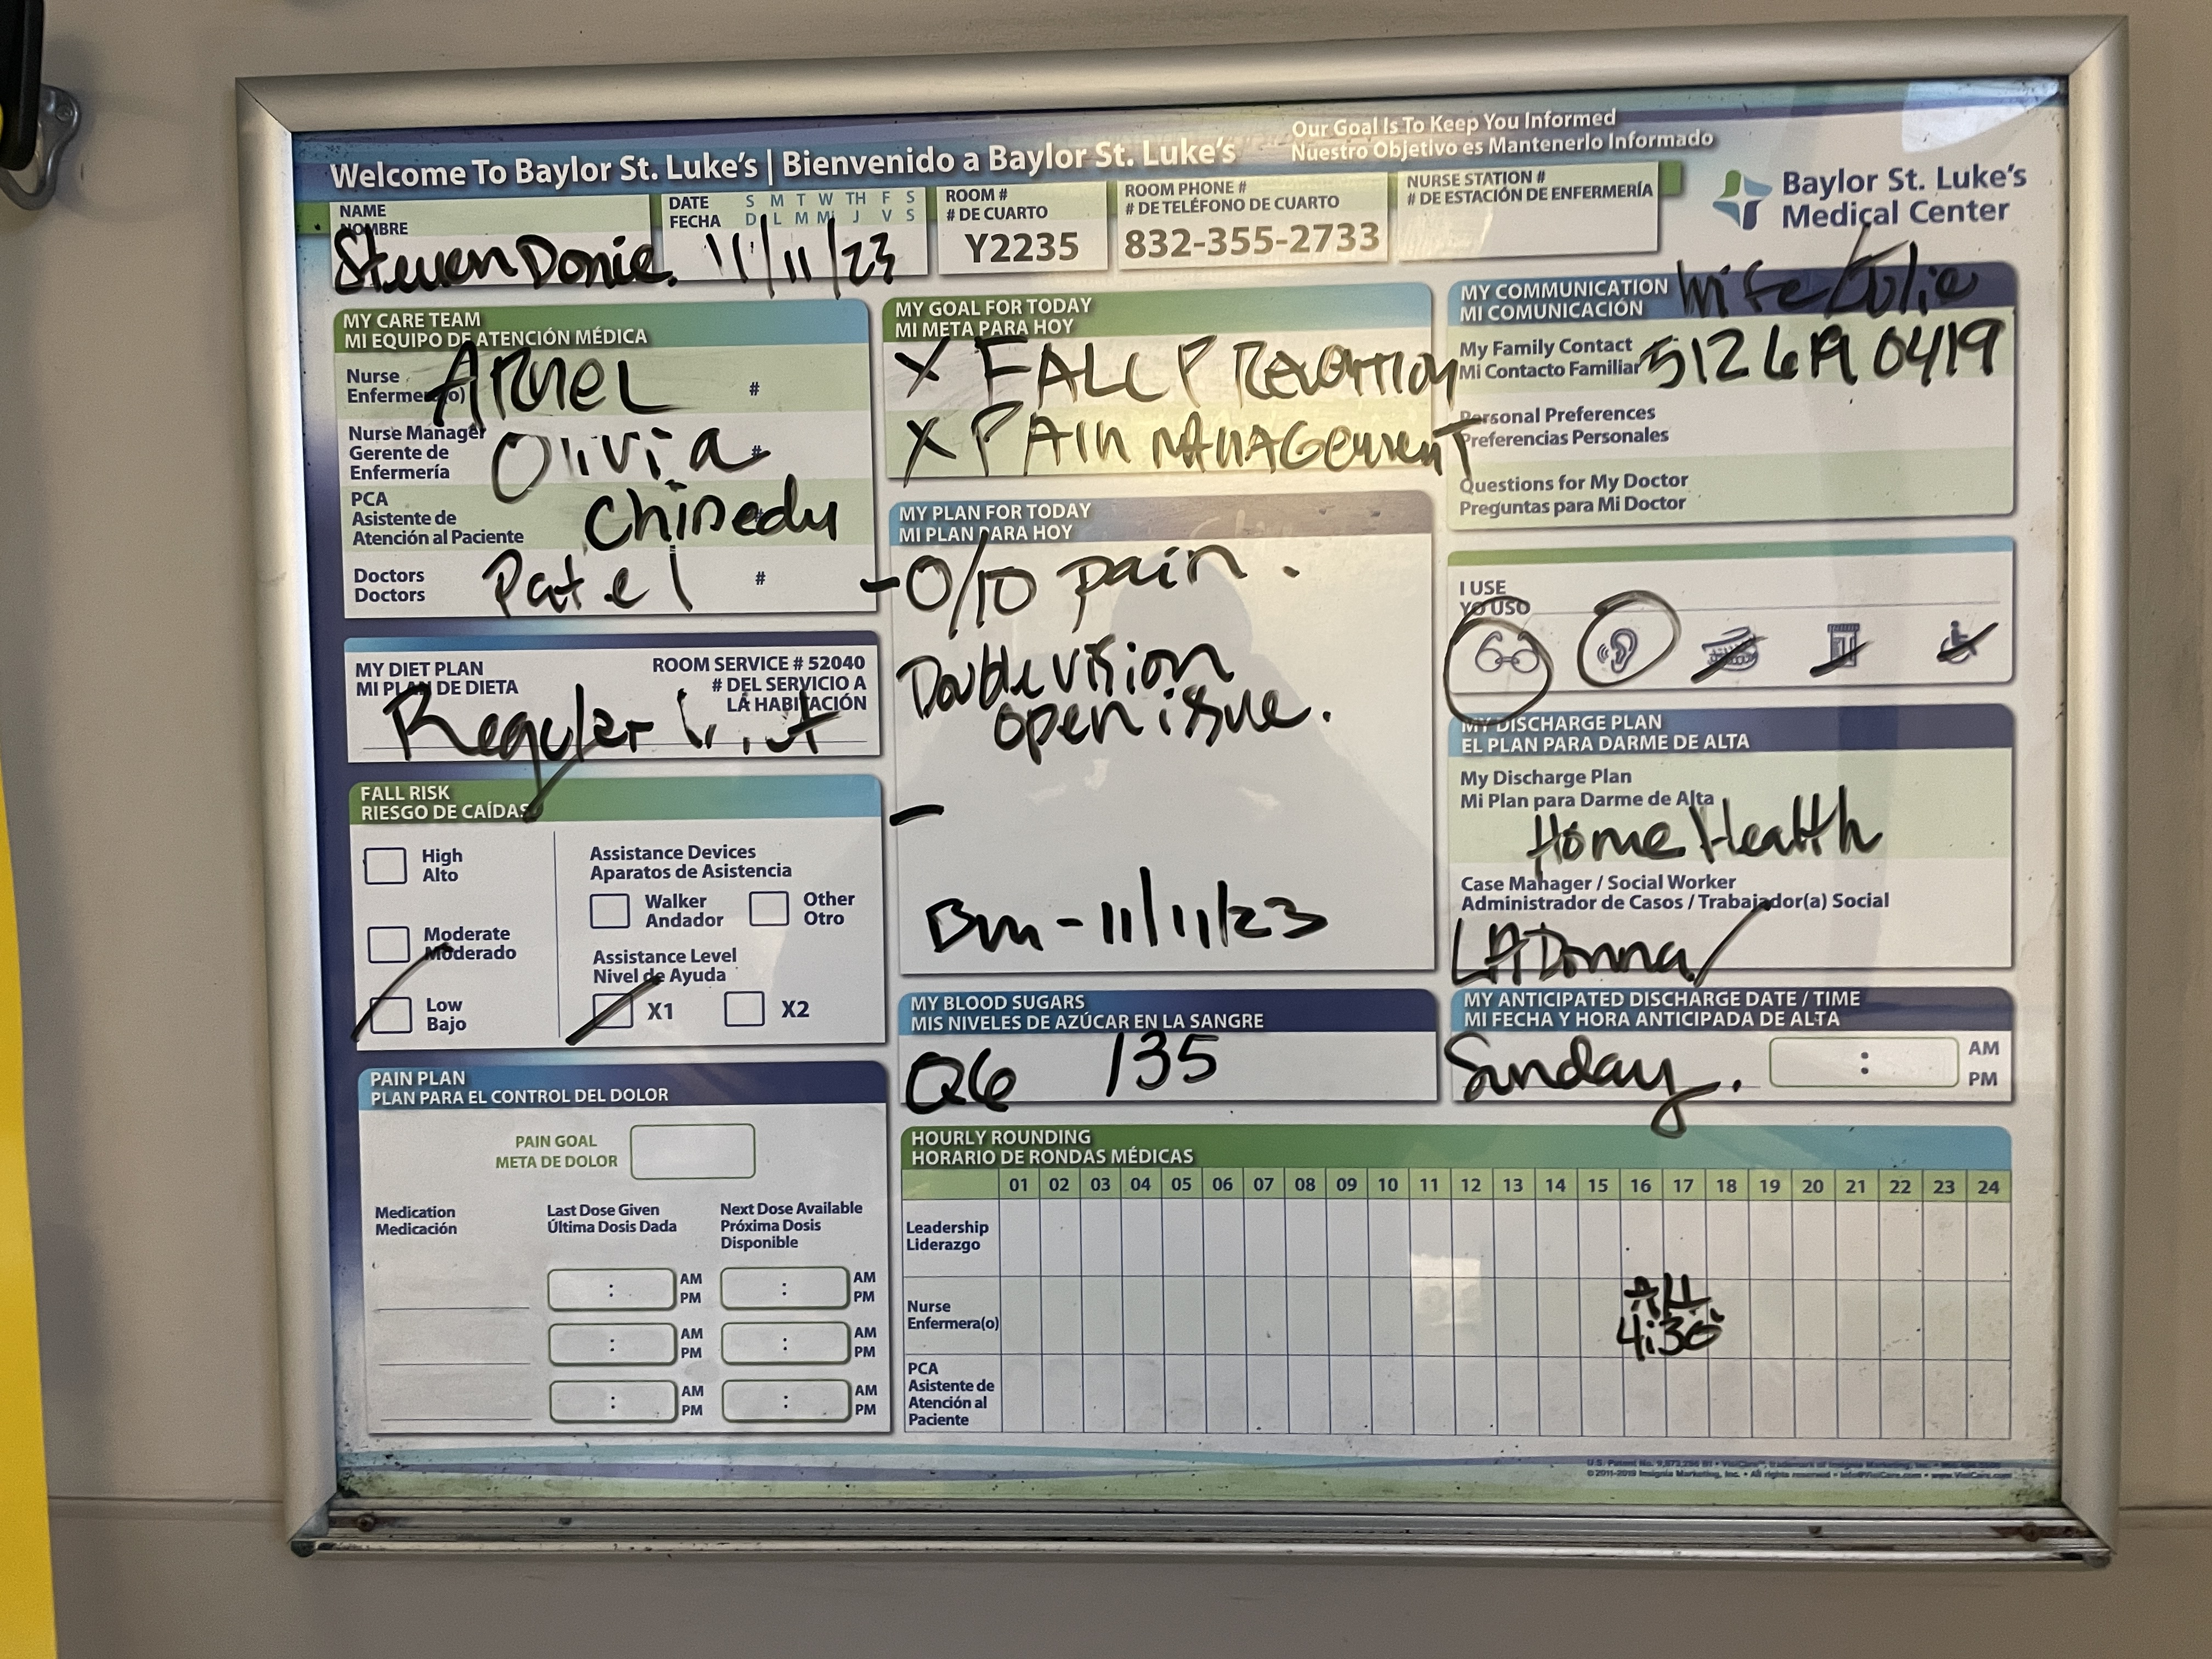 Welcome To Baylor St. Luke's | Bienvenido a Baylor St. Luke's
Our Goal Is To Keep You Informed
Nuestro Objetivo es Mantenerlo Informado
Baylor St. Luke's
Medical Center
NAME
NOMBRE
Steven Donie.
DATE S M T W TH F S
FECHA D L M Mi J V S
11/11/23
ROOM #
# DE CUARTO
Y2235
ROOM PHONE #
# DE TELÉFONO DE CUARTO
832-355-2733
NURSE STATION #
# DE ESTACIÓN DE ENFERMERÍA
MY CARE TEAM
MI EQUIPO DE ATENCIÓN MÉDICA
Nurse
Enfermer(o)
ARNEL #
Nurse Manager
Gerente de
Enfermería
Olivia #
PCA
Asistente de
Atención al Paciente
Chinedu
Doctors
Doctors
Patel #
MY DIET PLAN
MI PLAN DE DIETA
ROOM SERVICE # 52040
# DEL SERVICIO A
LA HABITACIÓN
Regular
FALL RISK
RIESGO DE CAÍDAS
High
Alto
Moderate
Moderado
Low
Bajo
Assistance Devices
Aparatos de Asistencia
Walker
Andador
Other
Otro
Assistance Level
Nivel de Ayuda
X1 X2
PAIN PLAN
PLAN PARA EL CONTROL DEL DOLOR
PAIN GOAL
META DE DOLOR
Medication
Medicación
Last Dose Given
Última Dosis Dada
Next Dose Available
Próxima Dosis
Disponible
: AM : AM
PM PM
: AM : AM
PM PM
: AM : AM
PM PM
MY GOAL FOR TODAY
MI META PARA HOY
X FALL PREVENTION
X PAIN MANAGEMENT
MY PLAN FOR TODAY
MI PLAN PARA HOY
- 0/10 pain.
Double vision
open issue.
-
Bm - 11/11/23
MY BLOOD SUGARS
MIS NIVELES DE AZÚCAR EN LA SANGRE
Q6 135
MY COMMUNICATION
MI COMUNICACIÓN
Wife/Julie
My Family Contact
Mi Contacto Familiar
512 619 0419
Personal Preferences
Preferencias Personales
Questions for My Doctor
Preguntas para Mi Doctor
I USE
YO USO
MY DISCHARGE PLAN
EL PLAN PARA DARME DE ALTA
My Discharge Plan
Mi Plan para Darme de Alta
Home Health
Case Manager / Social Worker
Administrador de Casos / Trabajador(a) Social
LADonna/
MY ANTICIPATED DISCHARGE DATE / TIME
MI FECHA Y HORA ANTICIPADA DE ALTA
Sunday. : AM
PM
HOURLY ROUNDING
HORARIO DE RONDAS MÉDICAS
01 02 03 04 05 06 07 08 09 10 11 12 13 14 15 16 17 18 19 20 21 22 23 24
Leadership
Liderazgo
Nurse
Enfermera(o)
4:30
PCA
Asistente de
Atención al
Paciente
© 2011-2019 Insignia Marketing, Inc. • All rights reserved • info@VisiCare.com • www.VisiCare.com